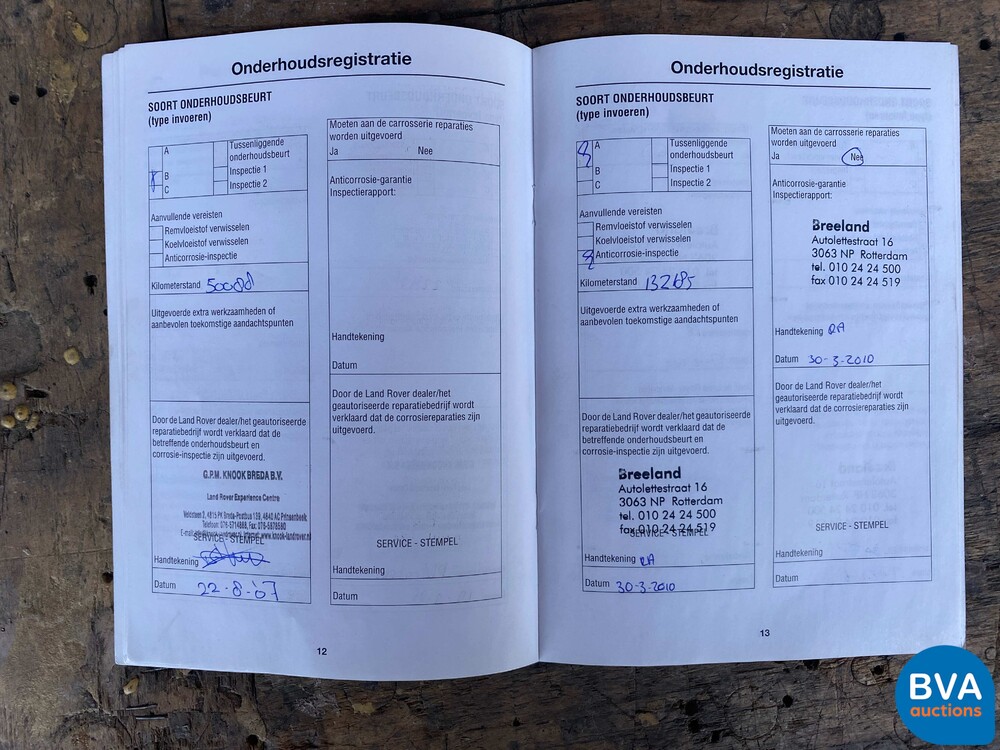 Onderhoudsregistratie
SOORT ONDERHOUDSBEURT
(type invoeren)
A
B
C
Tussenliggende
onderhoudsbeurt
Inspectie 1
Inspectie 2
Aanvullende vereisten
Remvloeistof verwisselen
Koelvloeistof verwisselen
Anticorrosie-inspectie
Kilometerstand
Uitgevoerde extra werkzaamheden of
aanbevolen toekomstige aandachtspunten
Door de Land Rover dealer/het geautoriseerde
reparatiebedrijf wordt verklaard dat de
betreffende onderhoudsbeurt en
corrosie-inspectie zijn uitgevoerd.
G.P.M. KNOOK BREDA B.V.
Land Rover Experience Centre
SERVICE - STEMPEL
Handtekening
Datum 22-8-'07
Moeten aan de carrosserie reparaties
worden uitgevoerd
Ja Nee
Anticorrosie-garantie
Inspectierapport:
Handtekening
Datum
Door de Land Rover dealer/het
geautoriseerde reparatiebedrijf wordt
verklaard dat de corrosiereparaties zijn
uitgevoerd.
SERVICE - STEMPEL
Handtekening
Datum
12
Onderhoudsregistratie
SOORT ONDERHOUDSBEURT
(type invoeren)
A
B
C
Tussenliggende
onderhoudsbeurt
Inspectie 1
Inspectie 2
Aanvullende vereisten
Remvloeistof verwisselen
Koelvloeistof verwisselen
Anticorrosie-inspectie
Kilometerstand 132685
Uitgevoerde extra werkzaamheden of
aanbevolen toekomstige aandachtspunten
Door de Land Rover dealer/het geautoriseerde
reparatiebedrijf wordt verklaard dat de
betreffende onderhoudsbeurt en
corrosie-inspectie zijn uitgevoerd.
Breeland
Autolettestraat 16
3063 NP Rotterdam
tel. 010 24 24 500
fax 010 24 24 519
SERVICE - STEMPEL
Handtekening RA
Datum 30-3-2010
Moeten aan de carrosserie reparaties
worden uitgevoerd
Ja Nee
Anticorrosie-garantie
Inspectierapport:
Breeland
Autolettestraat 16
3063 NP Rotterdam
tel. 010 24 24 500
fax 010 24 24 519
Handtekening RA
Datum 30-3-2010
Door de Land Rover dealer/het
geautoriseerde reparatiebedrijf wordt
verklaard dat de corrosiereparaties zijn
uitgevoerd.
SERVICE - STEMPEL
Handtekening
Datum
13
BVA
auctions